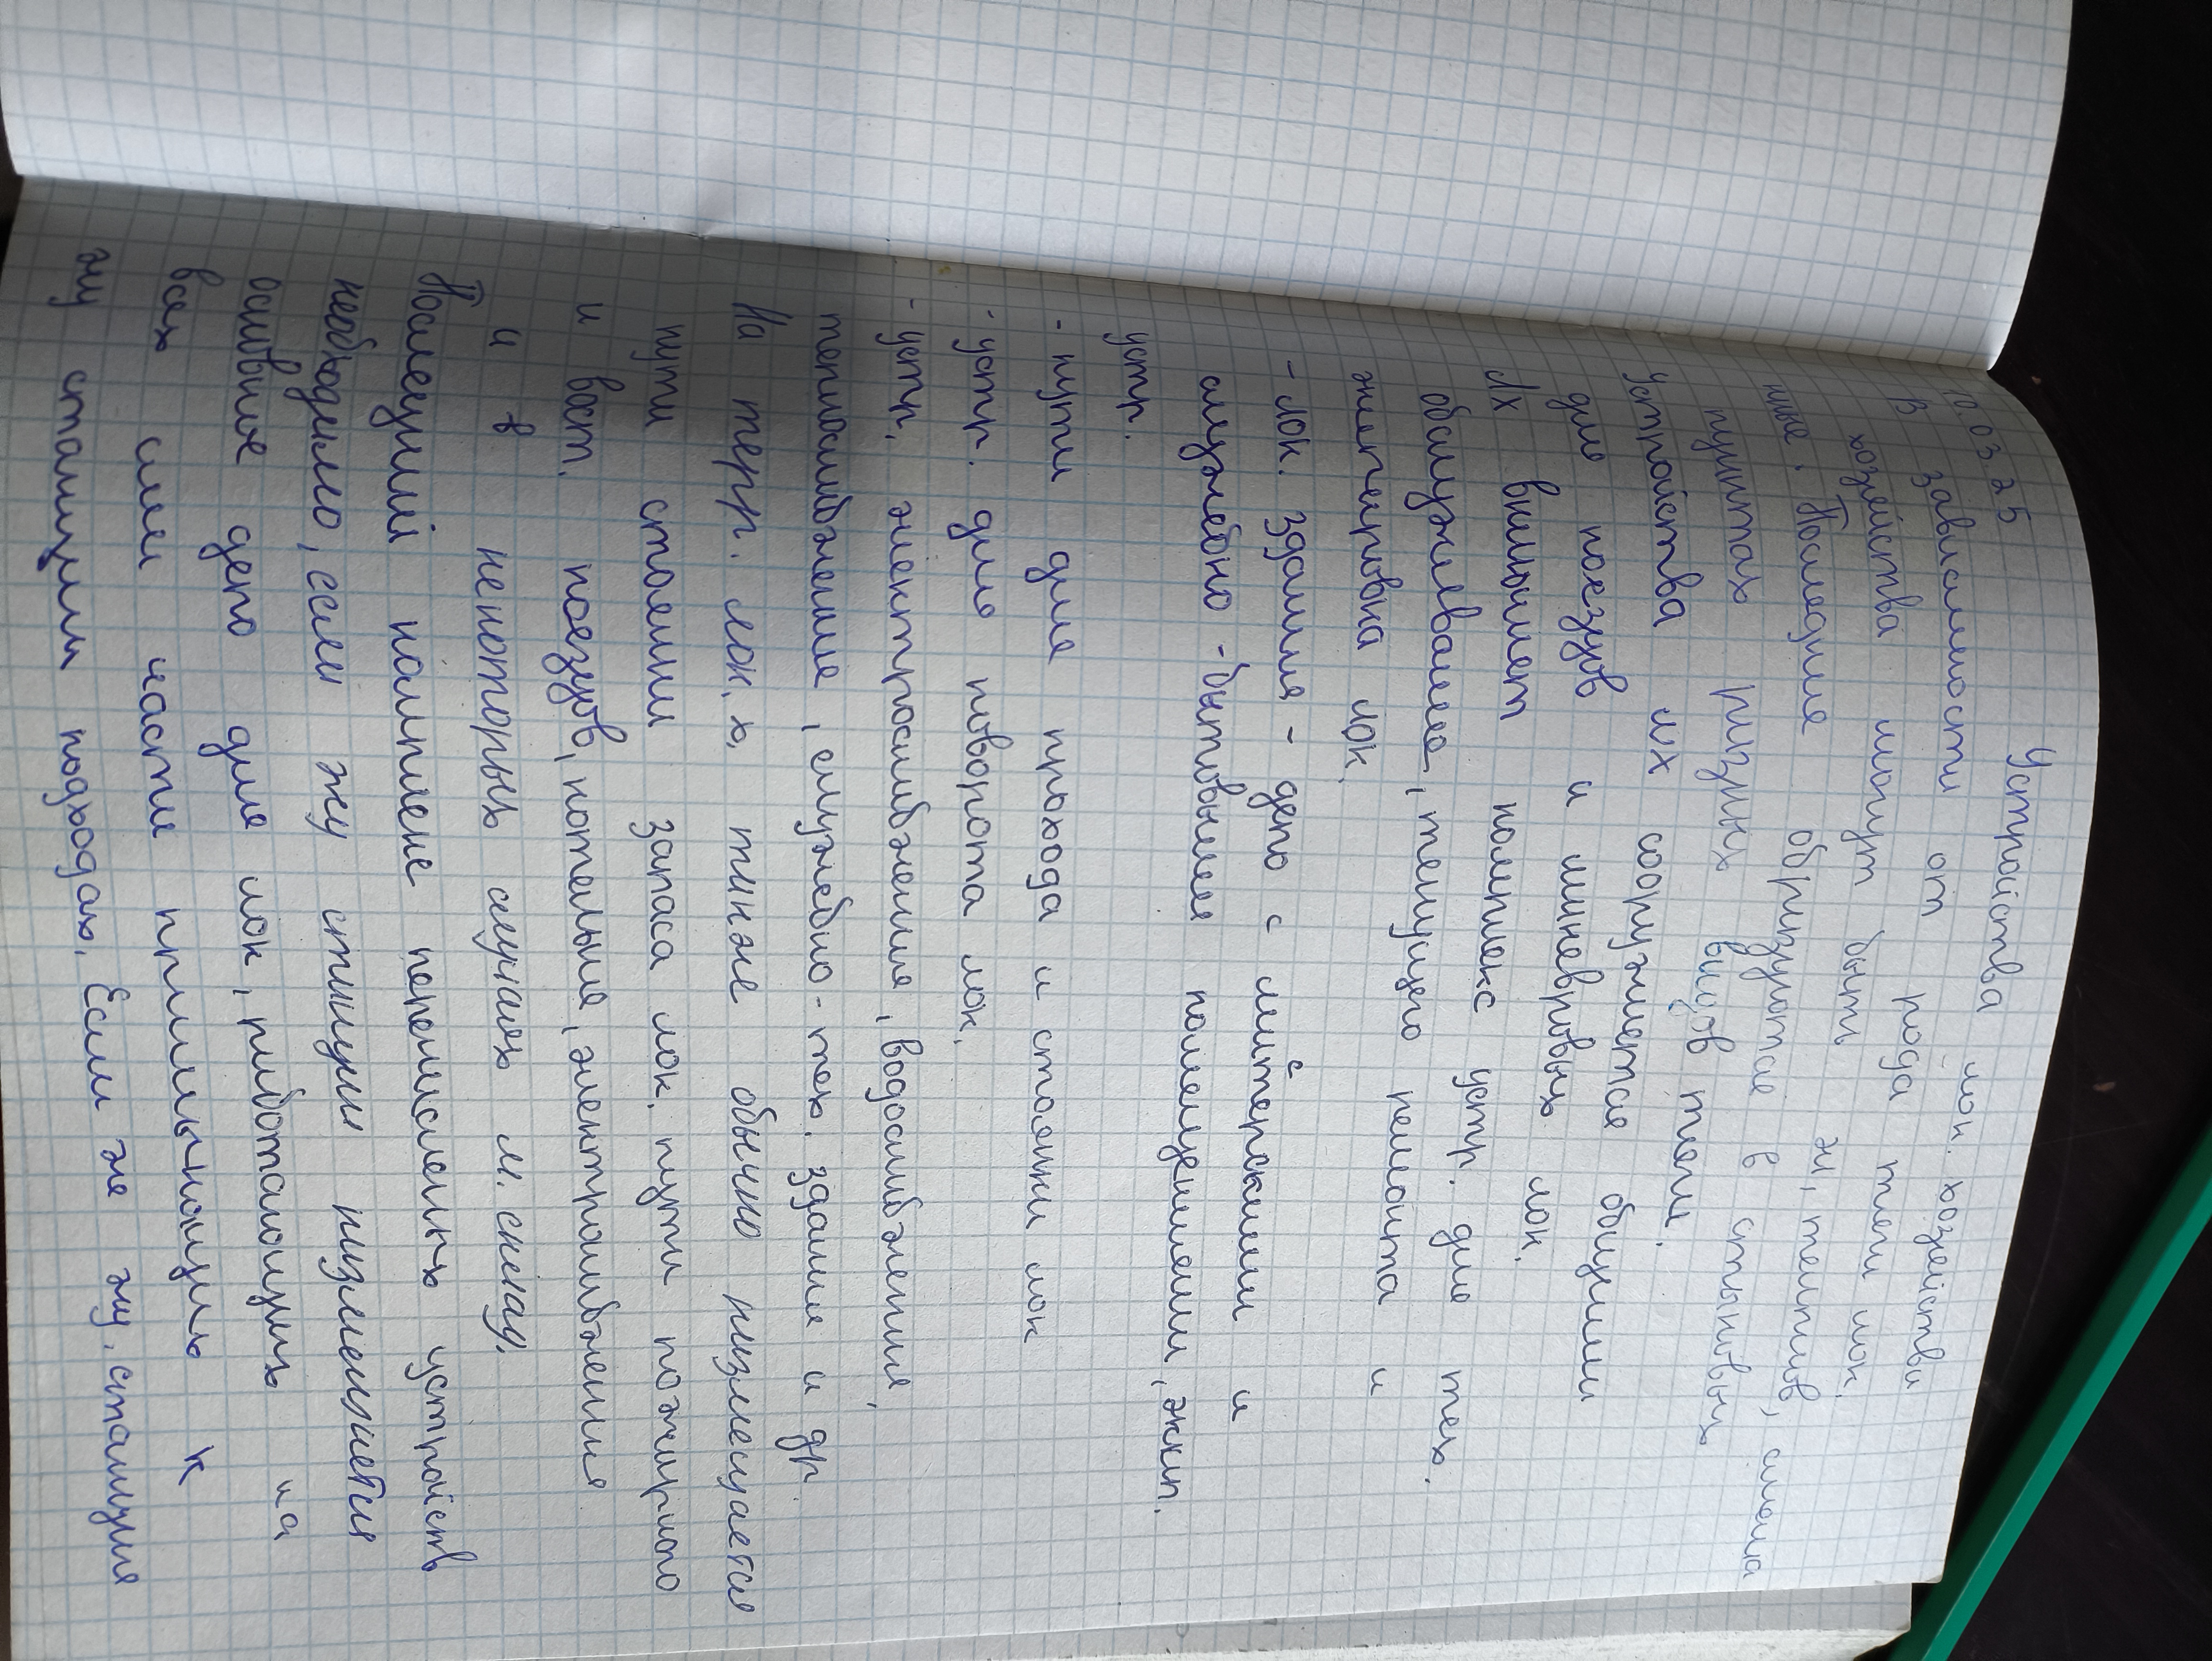 Устройства лок. хозяйства
10.03.25
В зависимости от рода тяги лок.
хозяйства могут быть эл, тепловоз, смена
ные. Последние образуются в стыковых
пунктах разных видов тяги.
Устройства ЛХ сооружаются общими
для поездов и маневровых лок.
ЛХ включает комплекс устр. для тех.
обслуживание, текущего ремонта и
экипировка лок.
- лок. здания - депо с мастерскими и
служебно - бытовыми помещениями, экип.
устр.
- пути для прохода и стоянки лок
- устр. для поворота лок.
- устр. электроснабжения, водоснабжения,
теплоснабжение, служебно - тех. здания и др.
На терр. лок. х. также обычно размещается
пути стоянки запаса лок. пути пожарного
и вост. поездов, котельные, электроснабжения
а в некоторых случаях м. склад.
Последний комплекс перечисленых устройств
необходимо, если жу станции размещается
основное депо для лок, работающих на
всех или части примыкающих к
жу станции подходах. Если же жу. станция